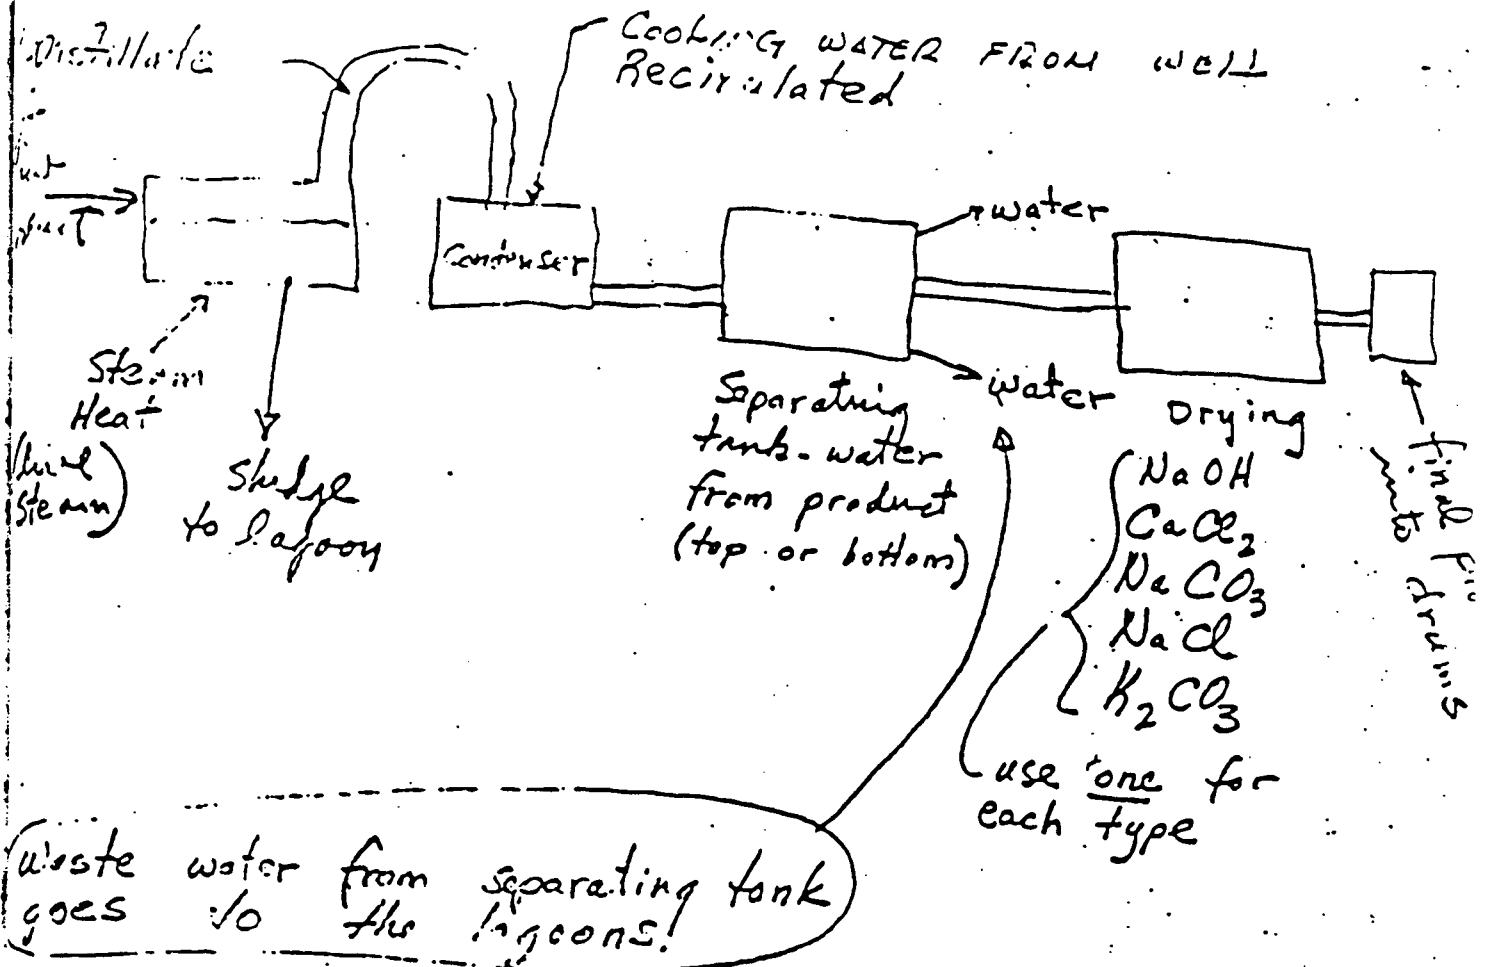 Distillate
COOLING WATER FROM WELL
Recirculated
Condenser
water
water
Steam
Heat
(live
steam)
Sludge
to lagoon
Separating
tank - water
from product
(top or bottom)
Drying
NaOH
CaCl2
NaCO3
NaCl
K2CO3
use one for
each type
final
into drums
waste water from separating tank
goes to the lagoons!